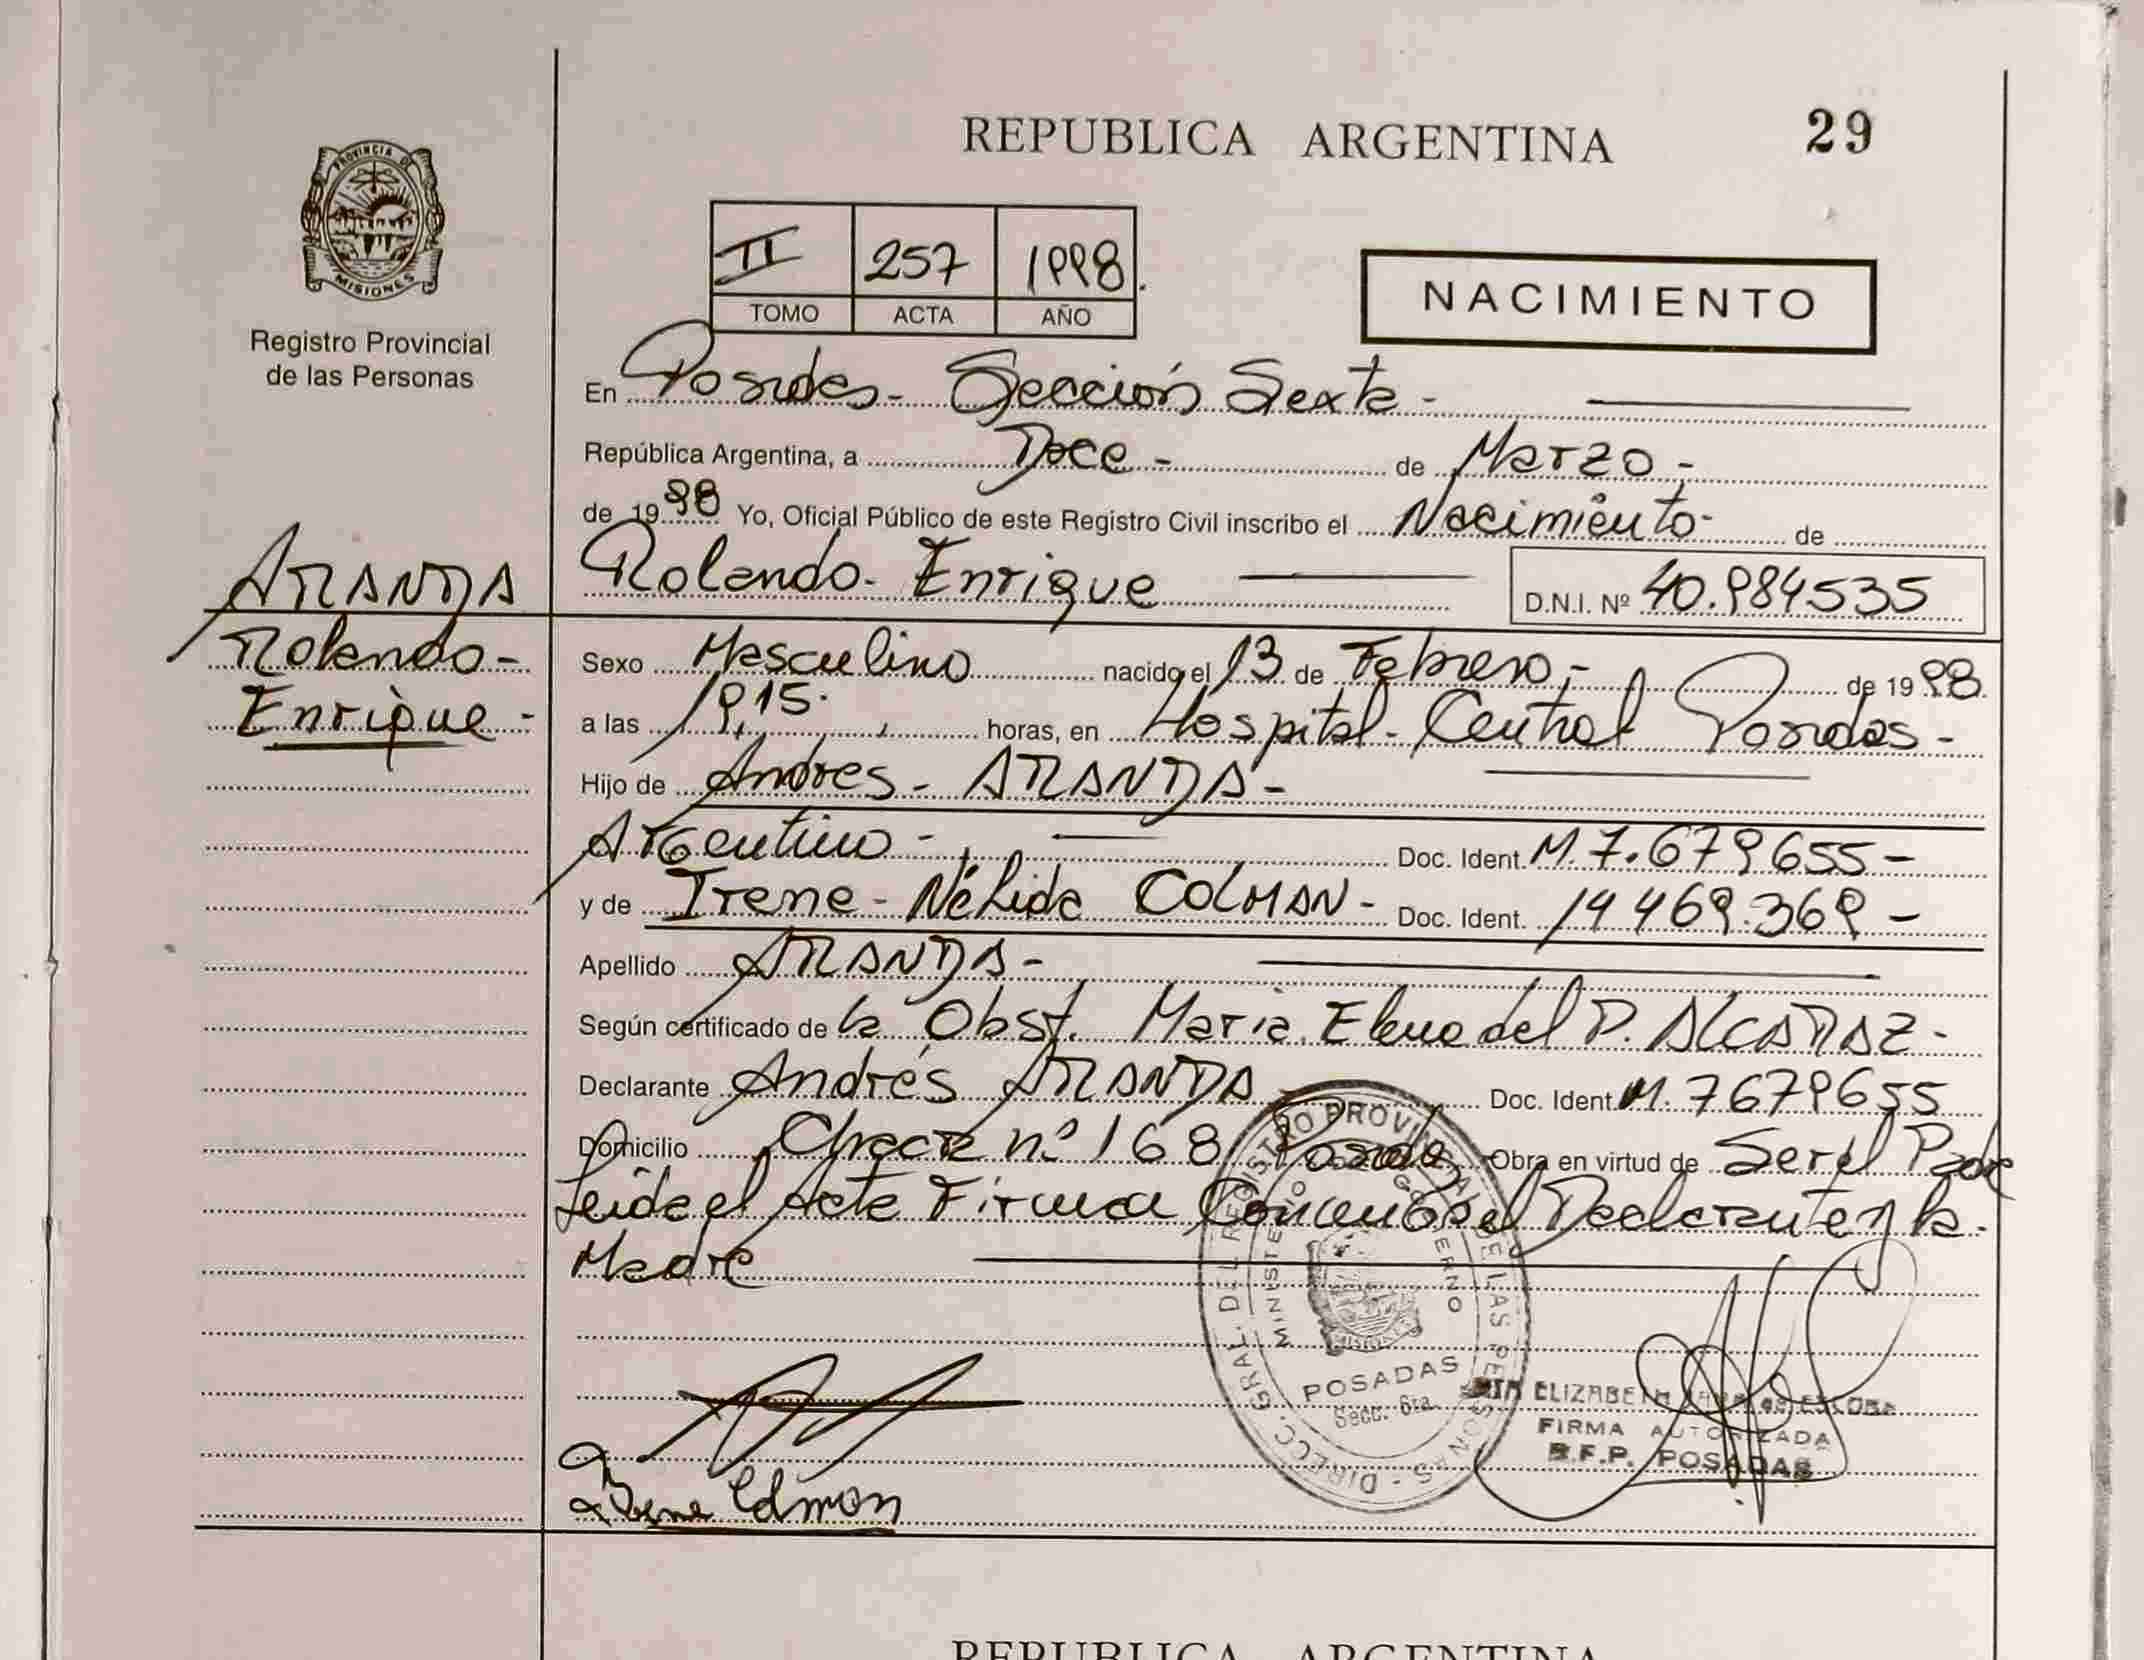 REPUBLICA ARGENTINA
29
PROVINCIA DE
MISIONES
Registro Provincial
de las Personas
II 257 1998.
TOMO ACTA AÑO
NACIMIENTO
En Posadas - Sección Sexta -
República Argentina, a Doce - de Marzo -
de 1998 Yo, Oficial Público de este Registro Civil inscribo el Nacimiento - de
Rolando - Enrique D.N.I. Nº 40.984535
ARANDA
Rolando -
Enrique -
Sexo Masculino nacido el 13 de Febrero - de 1998.
a las 19,15. horas, en Hospital - Central Posadas -
Hijo de Andres - ARANDA -
Argentino - Doc. Ident. M. 7.679655 -
y de Irene - Nélida COLMAN - Doc. Ident. 14 469.369 -
Apellido ARANDA -
Según certificado de la Obst. Maria Elena del P. ALCARAZ -
Declarante Andrés ARANDA Doc. Ident. M. 7679655
Domicilio Chacra nº 168 Posadas Obra en virtud de Ser el Padre
Leida el Acta Firma Conmigo el Declarante y la
Madre
DIRECC. GRAL. DEL REGISTRO PROVINCIAL DE LAS PERSONAS -
MINISTERIO GOBIERNO
POSADAS
Secc. 6ta.
ELIZABETH
FIRMA AUTORIZADA
POSADAS
Irene Colman
REPUBLICA ARGENTINA